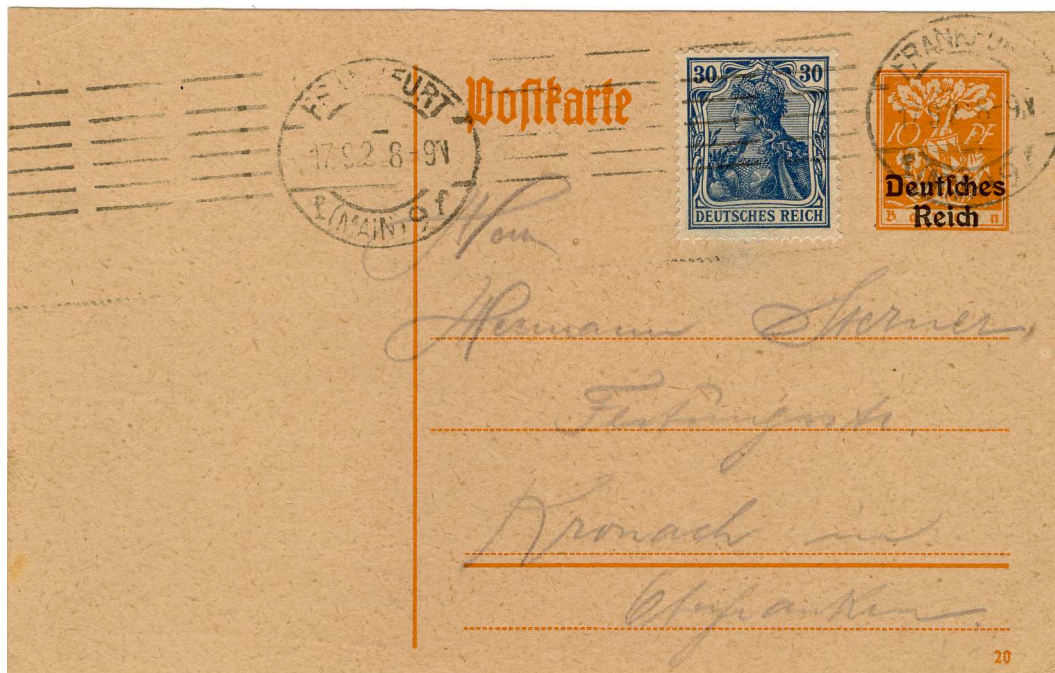 FRANKFURT
17.9.2 8-9N
f (MAIN) 9 f
Postkarte
30 30
DEUTSCHES REICH
FRANKFU
8-9N
10 Pf
Deutsches
Reich
Herrn
Hermann Sterner,
Festungsstr.
Kronach in
Oberfranken.
20